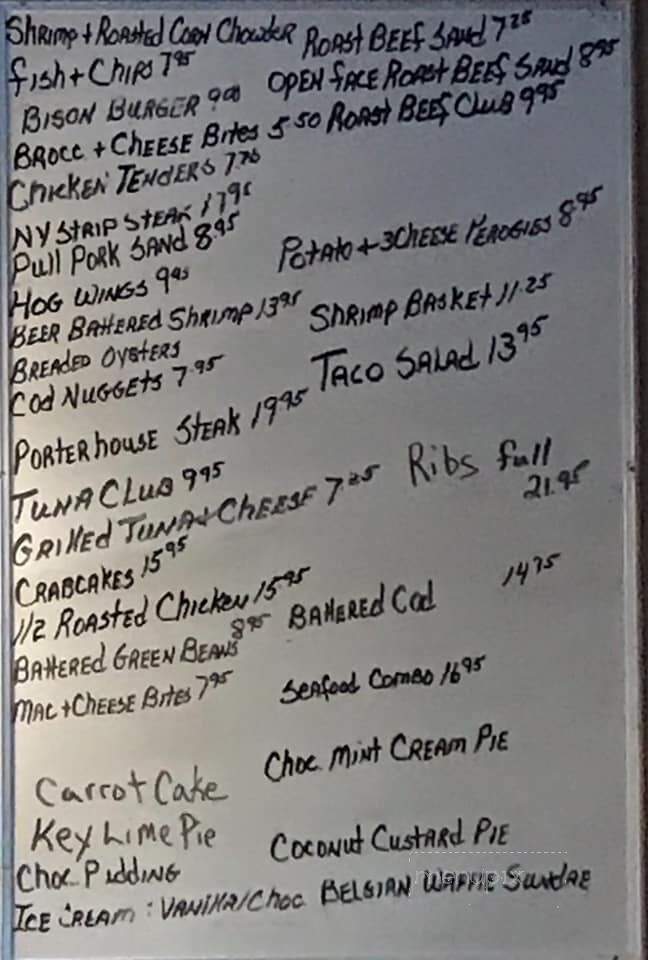 Shrimp + Roasted Corn Chowder
Roast Beef Sand 7 25
Fish + Chips 7 95
Open Face Roast Beef Sand 8 95
Bison Burger 9 00
Roast Beef Club 9 95
Brocc + Cheese Bites 5 50
Chicken Tenders
NY Strip Steak 17 95
Pull Pork Sand 8.95
Potato + 3 Cheese Perogies 8.95
Hog Wings 9 95
Beer Battered Shrimp 13 95
Shrimp Basket 11.25
Breaded Oysters
Cod Nuggets 7.95
Taco Salad 13 95
Porterhouse Steak 19 95
Tuna Club 9 95
Ribs full
21.95
Grilled Tuna + Cheese 7 25
Crabcakes 15 95
1/2 Roasted Chicken 15 95
Battered Cod 14 75
Battered Green Beans 8 95
Mac + Cheese Bites 7 95
Seafood Combo 16 95
Choc Mint Cream Pie
Carrot Cake
Key Lime Pie
Coconut Custard Pie
Choc. Pudding
Belgian Waffle Sundae
Ice Cream: Vanilla/Choc
menupix